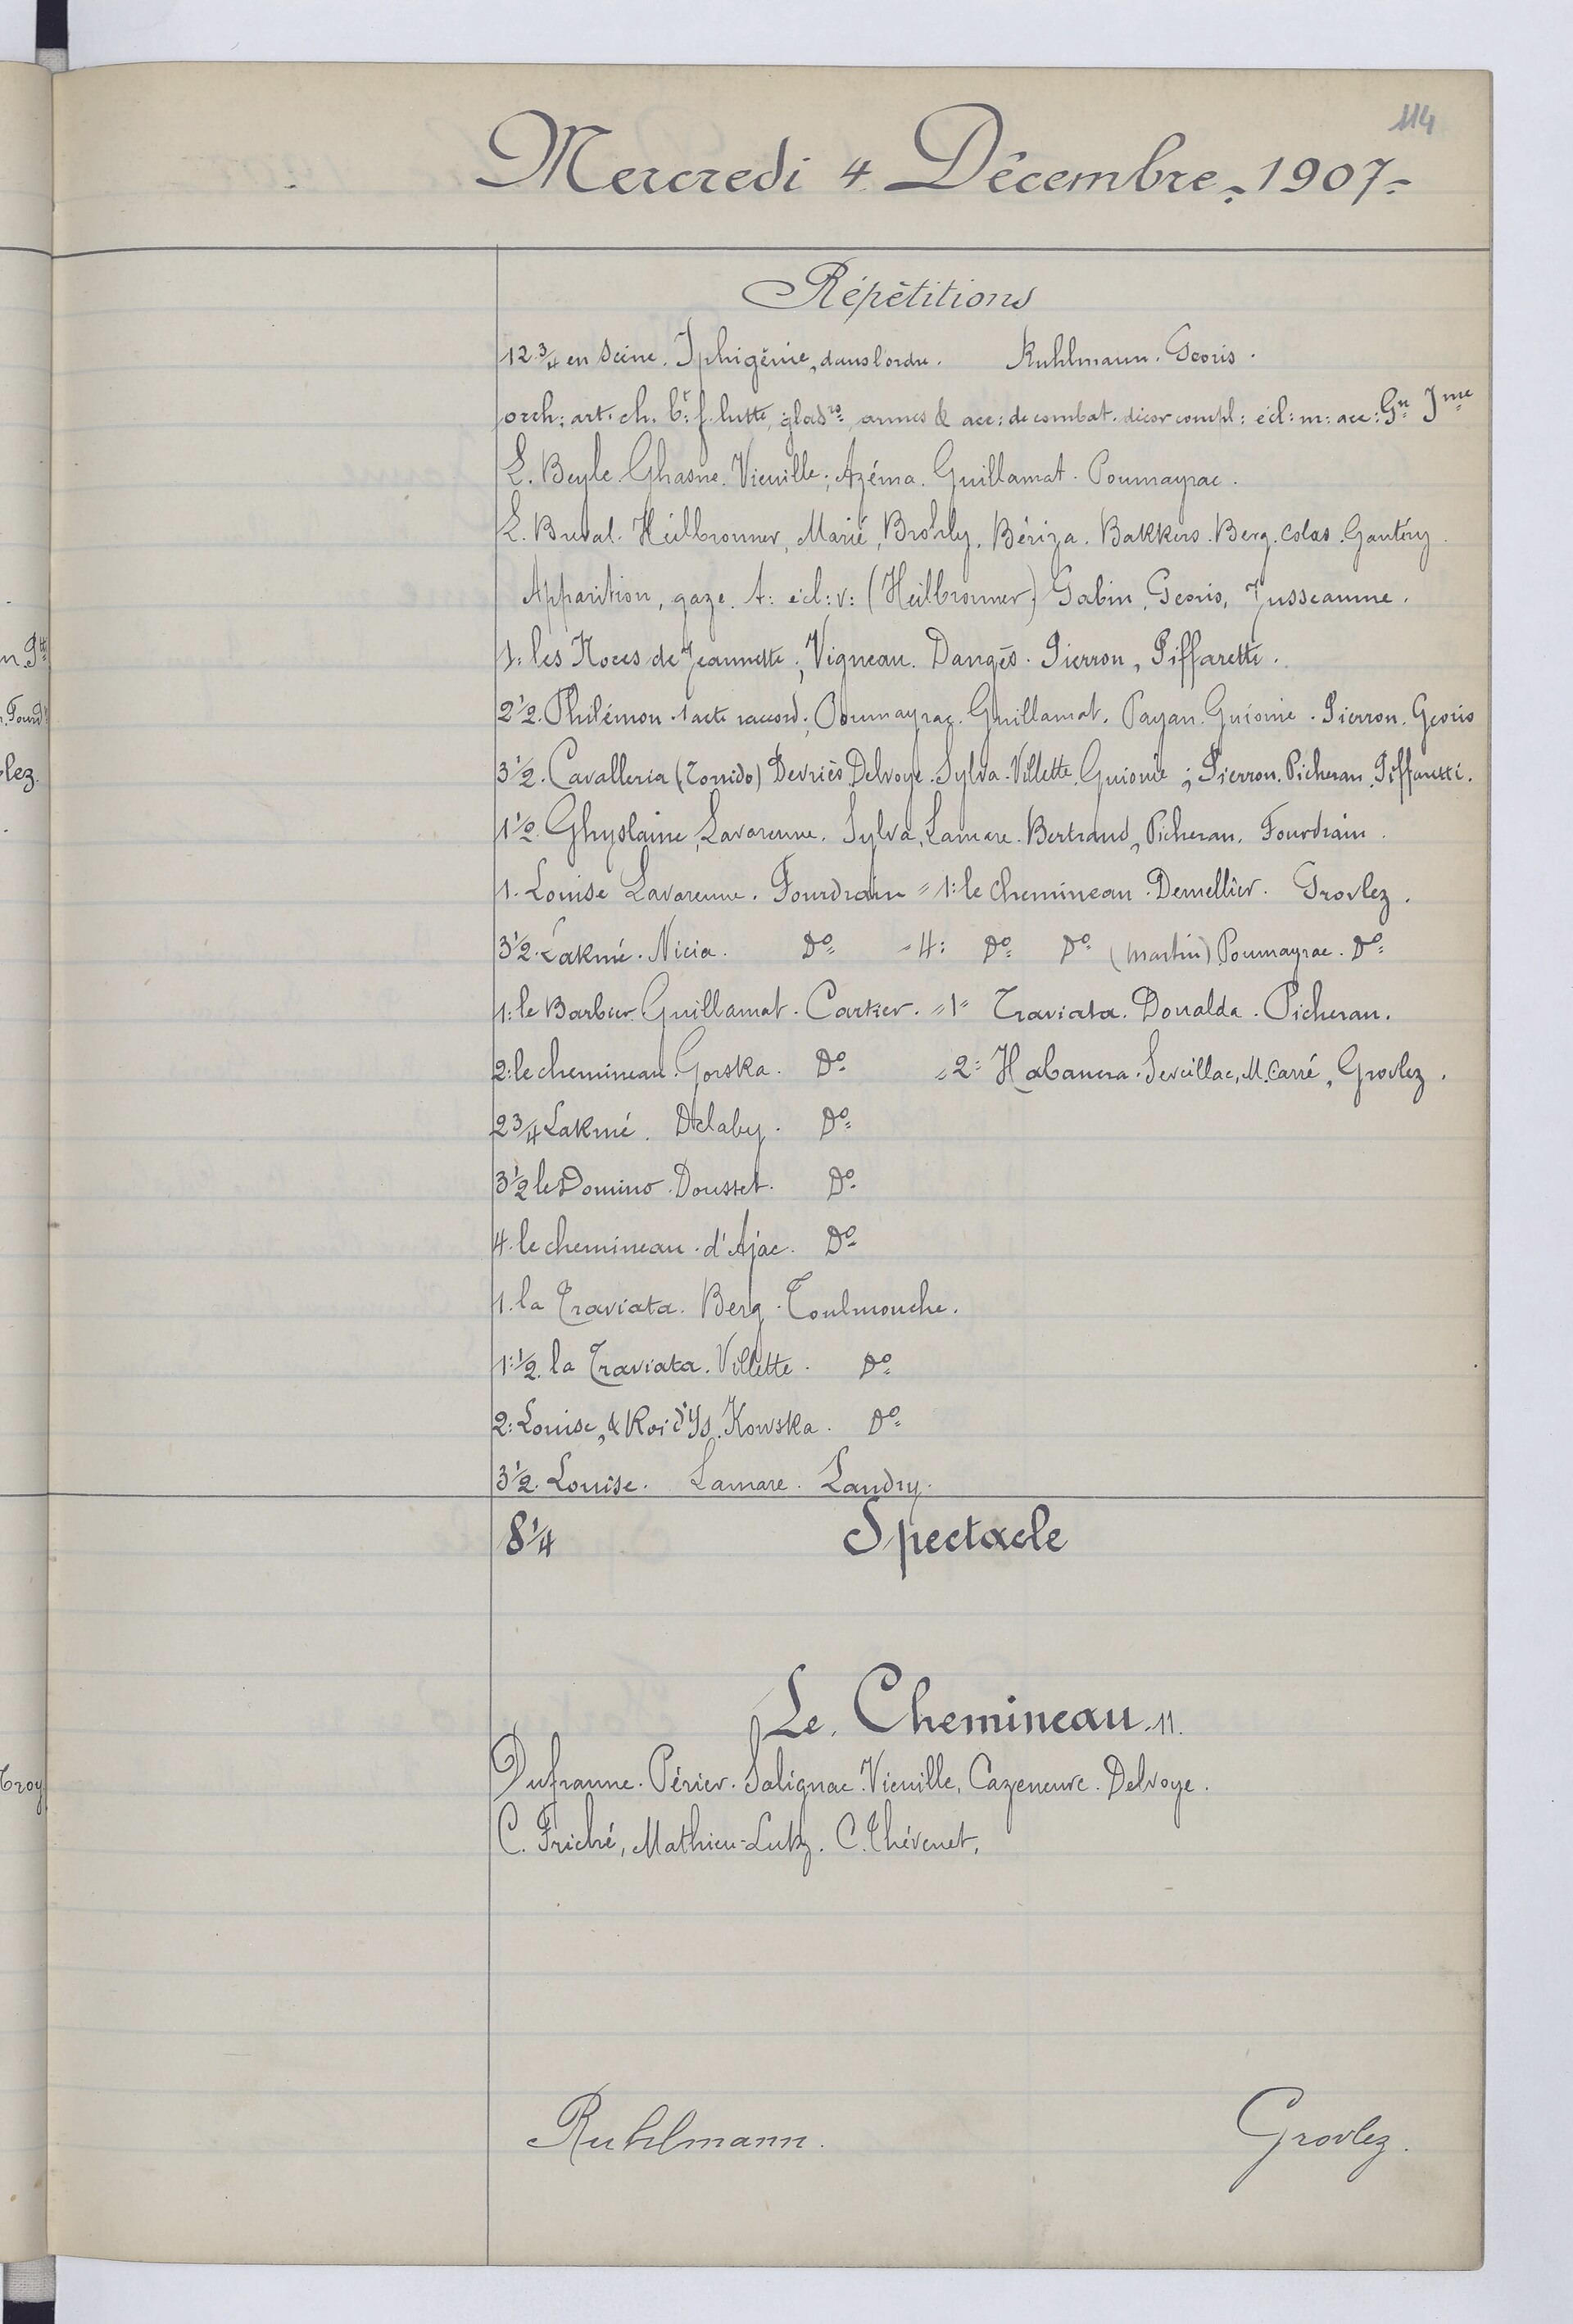 114
Mercredi 4 Décembre 1907
Répétitions
12 3/4 en Scène. Iphigénie, dans l'ordre. Ruhlmann. Georis.
orch: art. ch. bt: f. lutte, gladrs, armes & acc: de combat. décor compl: écl: m: acc: Gn Jme
L. Beyle. Ghasne. Vieuille; Azéma. Guillamat. Poumayrac.
L. Breval. Heilbronner, Marié, Brohly, Bériza. Bakkers. Berg. Colas. Gantéry.
Apparition, gaze. t: écl: v: (Heilbronner) Gabin, Georis, Jusseaume.
1: les Noces de Jeannette; Vigneau. Dangès. Pierron, Piffaretti.
2 1/2. Philémon. 1 acte raccord; Poumayrac. Guillamat. Payan. Guionie. Pierron. Georis
3 1/2. Cavalleria (Torrido) Devriès. Delvoye. Sylva. Villette. Guionie; Pierron. Picheran. Piffaretti.
1 1/2 Ghyslaine, Lavarenne. Sylva, Lamare. Bertrand, Picheran. Fourdrain.
1. Louise Lavarenne. Fourdrain = 1: le Chemineau. Demellier. Grovlez.
3 1/2. Lakmé. Nicia. Do = 4: Do Do (Martin) Poumayrac. Do
1: le Barbier. Guillamat. Cartier. = 1 = Traviata. Donalda. Picheran.
2: le chemineau. Gorska. Do = 2: Habanera. Seveillac, M. Carré, Grovlez.
2 3/4 Lakmé. Delaby. Do
3 1/2 le Domino. Dousset. Do
4. le chemineau. d'Ajac. Do
1. la Traviata. Berg. Toulmouche.
1 1/2. la Traviata. Villette. Do
2: Louise, & Roi d'Ys. Kowska. Do
3 1/2. Louise. Lamare. Landry.
8 1/4 Spectacle
Le Chemineau. 11.
Dufranne. Périer. Salignac. Vieuille, Cazeneuve. Delvoye.
C. Friché, Mathieu-Lutz. C. Thévenet,
Ruhlmann. Grovlez.